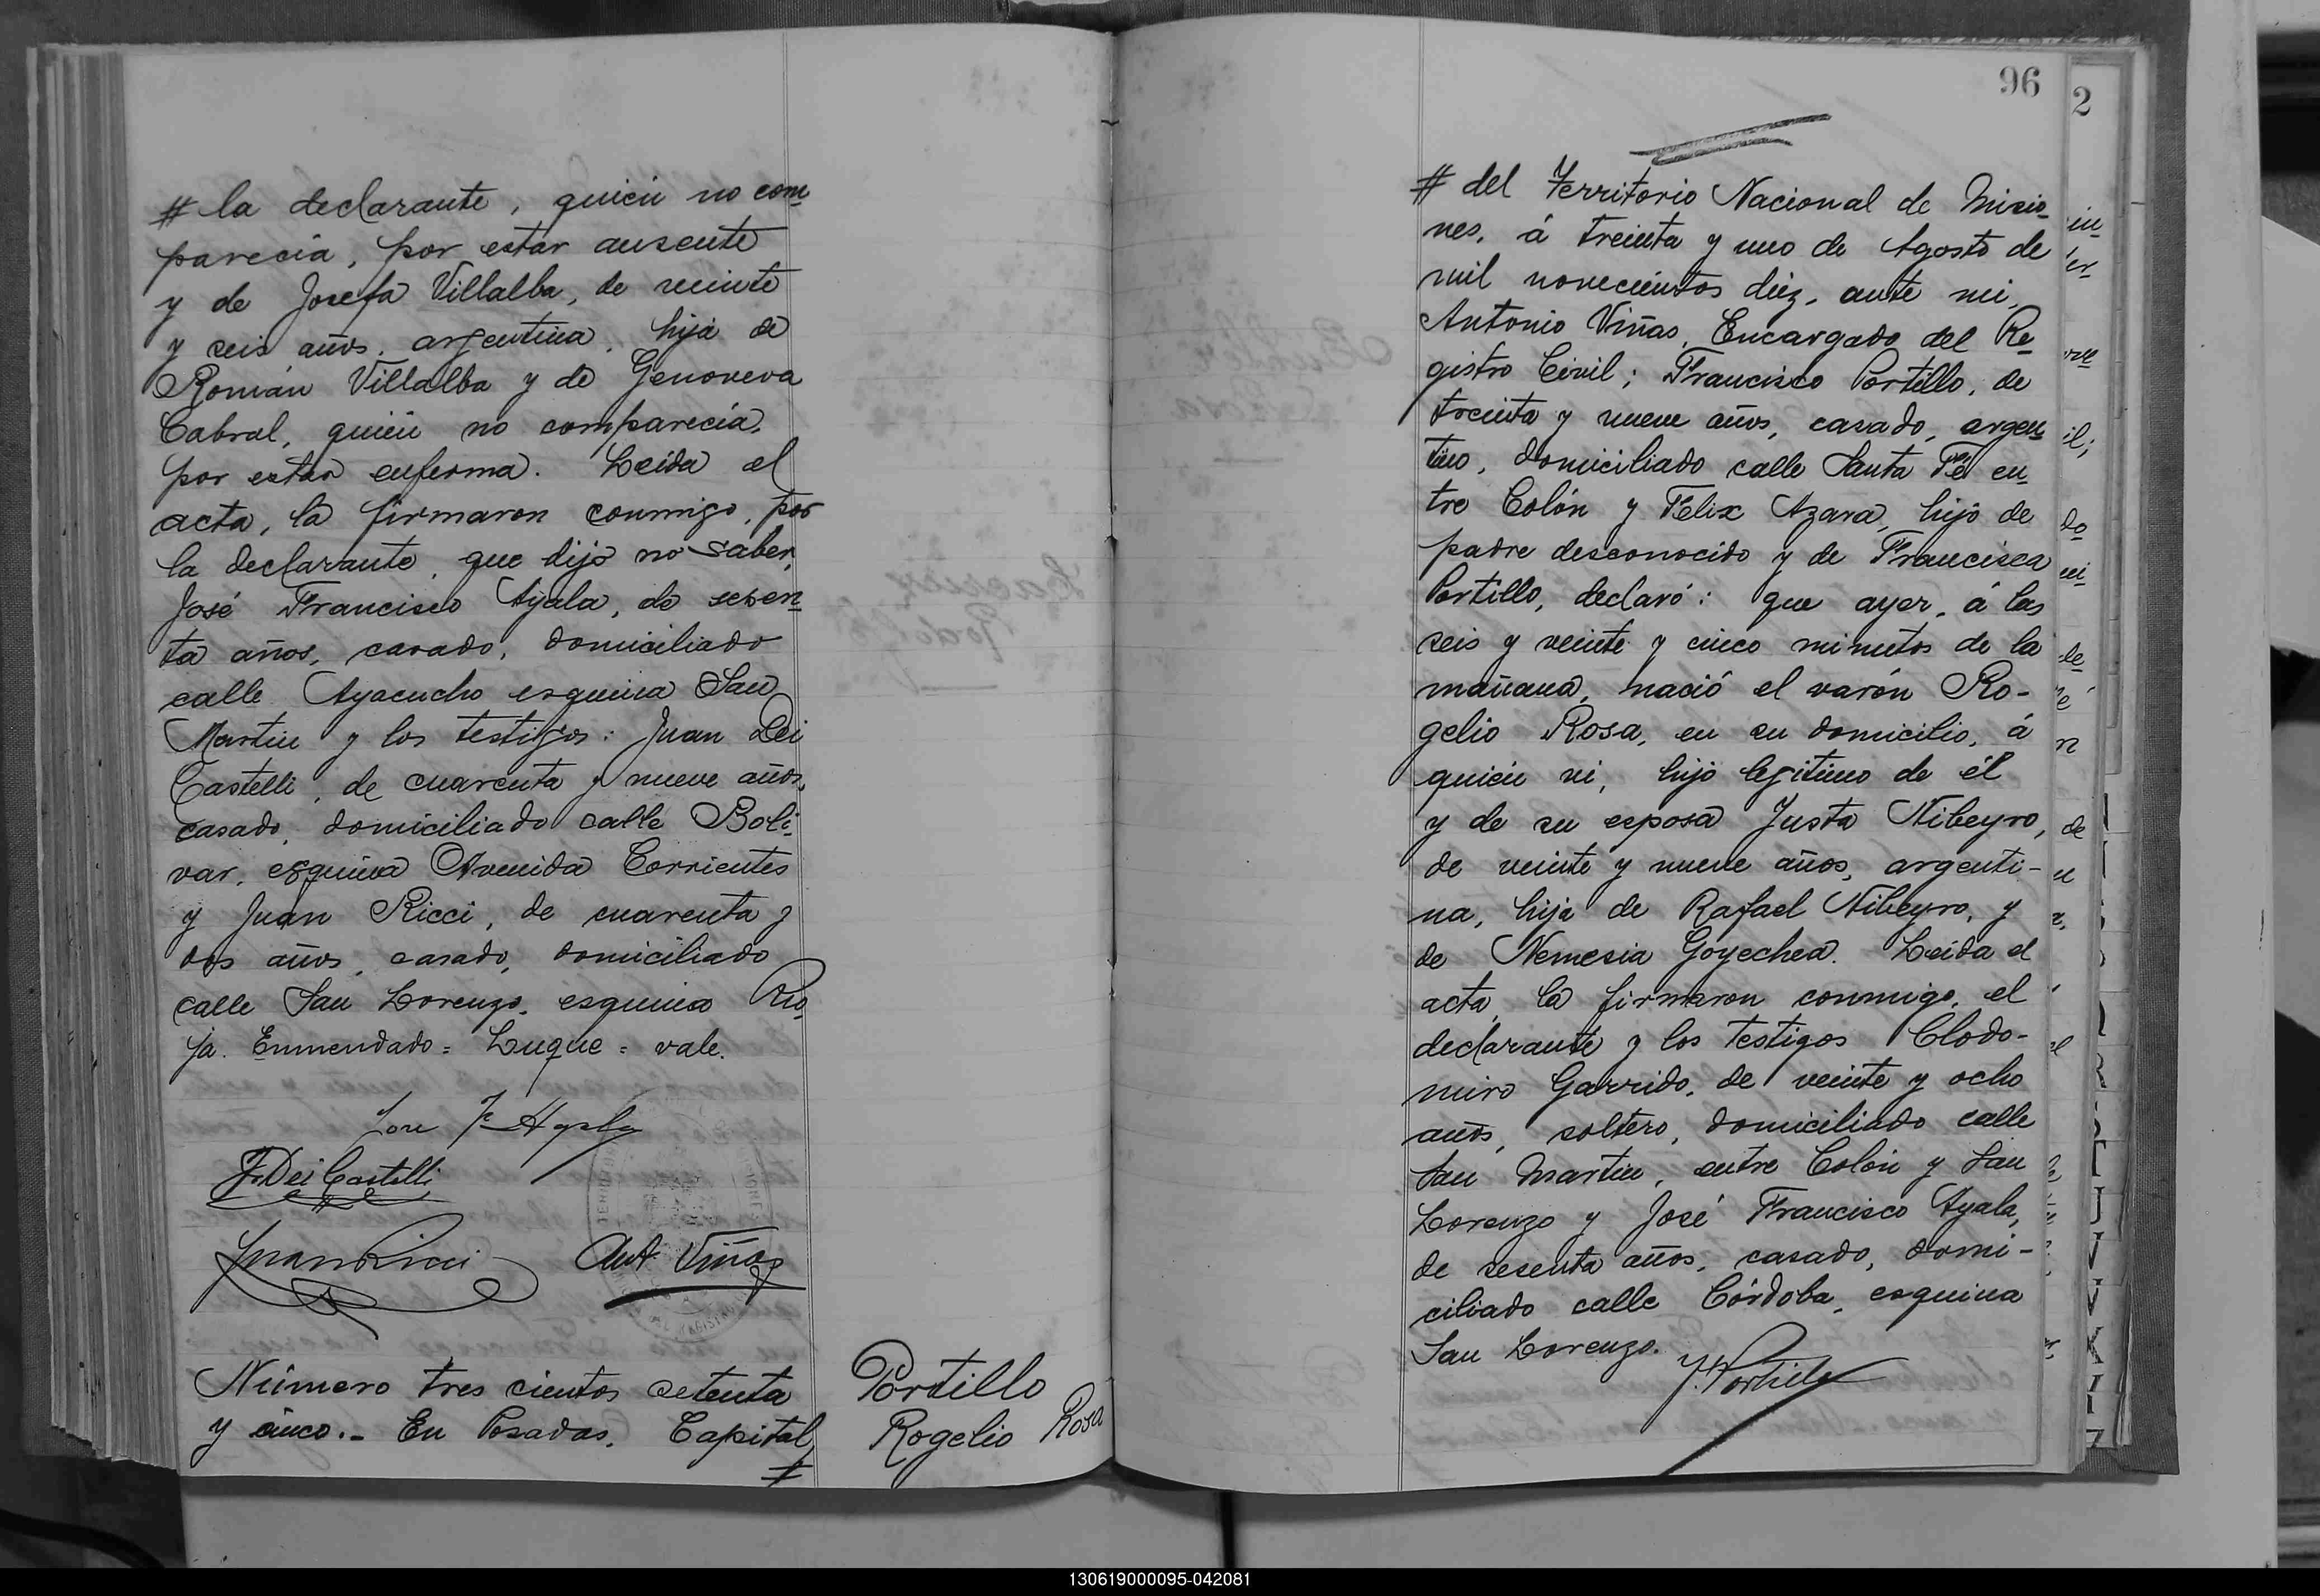 # la declarante, quién no com
parecía, por estar ausente
y de Josefa Villalba, de veinte
y seis años, argentina, hija de
Román Villalba y de Genoveva
Cabral, quién no comparecía,
por estar enferma. Leída el
acta, la firmaron conmigo, por
la declarante, que dijo no saber,
José Francisco Ayala, de sesen
ta años, casado, domiciliado
calle Ayacucho esquina San
Martín y los testigos: Juan Dei
Castelli, de cuarenta y nueve años,
casado, domiciliado calle Boli
var, esquina Avenida Corrientes
y Juan Ricci, de cuarenta y
dos años, casado, domiciliado
calle San Lorenzo, esquina Rio
ja. Enmendado = Luque = vale.
Jose F. Ayala
J. Dei Castelli
Juan Ricci
Ant. Viñas
Número tres cientos setenta
y cinco.- En Posadas, Capital
#
Portillo
Rogelio Rosa
96
2
# del Territorio Nacional de Misio
nes, á treinta y uno de Agosto de
mil novecientos diez, ante mi,
Antonio Viñas, Encargado del Re
gistro Civil; Francisco Portillo, de
treinta y nueve años, casado, argen
tino, domiciliado calle Santa Fé en
tre Colón y Félix Azara, hijo de
padre desconocido y de Francisca
Portillo, declaró: que ayer, á las
seis y veinte y cinco minutos de la
mañana, nació el varón Ro-
gelio Rosa, en su domicilio, á
quién vi, hijo legítimo de él
y de su esposa Justa Nibeyro,
de veinte y nueve años, argenti-
na, hija de Rafael Nibeyro, y
de Nemesia Goyechea. Leída el
acta, la firmaron conmigo, el
declarante y los testigos Clodo-
miro Garrido, de veinte y ocho
años, soltero, domiciliado calle
San Martín, entre Colón y San
Lorenzo y José Francisco Ayala,
de sesenta años, casado, domi-
ciliado calle Córdoba, esquina
San Lorenzo.
F. Portillo
130619000095-042081